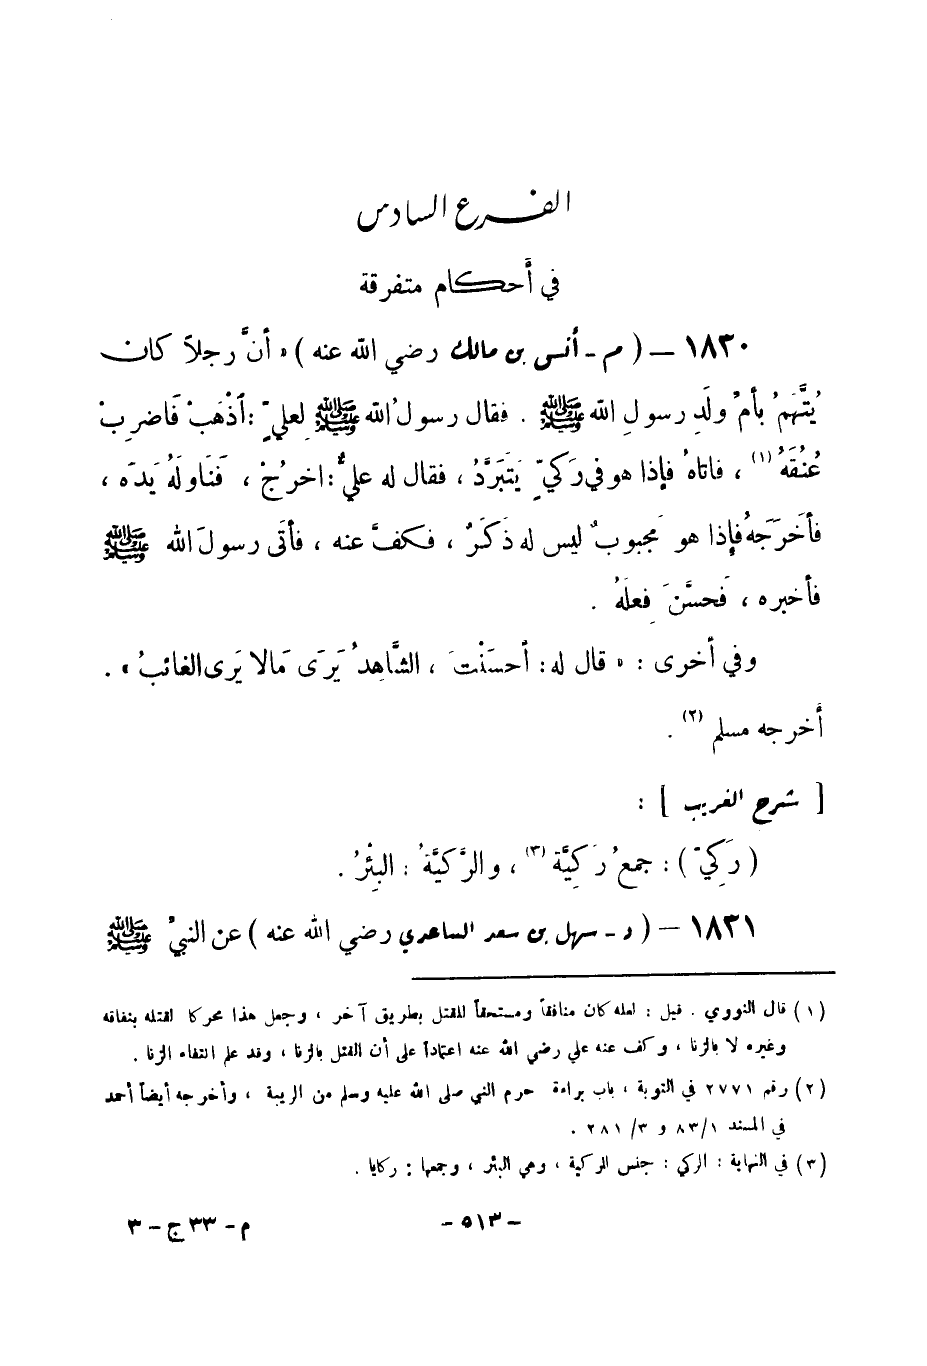 الفرع السادس
في أحكام متفرقة
١٨٣٠ – ( م - أنس بن مالك رضي الله عنه ) « أنَّ رجلاً كان
يُتَّهَمُ بأمِّ ولَدِ رسولِ الله ﷺ . فقال رسولُ الله ﷺ لعليٍّ : اَذْهَبْ فَاضرِبْ
عُنُقَهُ (١) ، فاتاهُ فإذا هو في رَكيٍّ يَتَبَرَّدُ ، فقال له عليٌّ : اخرُجْ ، فَنَاولَهُ يَدَه ،
فأخَرَجَهُ فإذا هو مَجبوبٌ ليس له ذَكَرٌ ، فكفَّ عنه ، فأتَى رسولَ الله ﷺ
فأخبره ، فَحسَّنَ فِعلَهُ .
وفي أخرى : « قال له : أحسَنْتَ ، الشَّاهِدُ يَرَى مَالا يَرى الغائبُ » .
أخرجه مسلم (٢) .
[ شرح الغريب ] :
( رَكِيّ ) : جمعُ رَكِيَّة (٣) ، والرَّكيَّةُ : البِئْرُ .
١٨٣١ – ( د - سهل بن سعد الساعدي رضي الله عنه ) عن النبيِّ ﷺ
(١) قال النووي . قيل : لعله كان منافقاً ومستحقاً للقتل بطريق آخر ، وجعل هذا محركا لقتله بنفاقه
وغيره لا بالزنا ، وكف عنه علي رضي الله عنه اعتماداً على أن القتل بالزنا ، وقد علم انتفاء الزنا .
(٢) رقم ٢٧٧١ في التوبة ، باب براءة حرم النبي صلى الله عليه وسلم من الريبة ، وأخرجه أيضاً أحمد
في المسند ٨٣/١ و ٣/ ٢٨١ .
(٣) في النهاية : الركي : جنس الركية ، وهي البئر ، وجمعها : ركايا .
- ٥١٣ -
م - ٣٣ ج - ٣